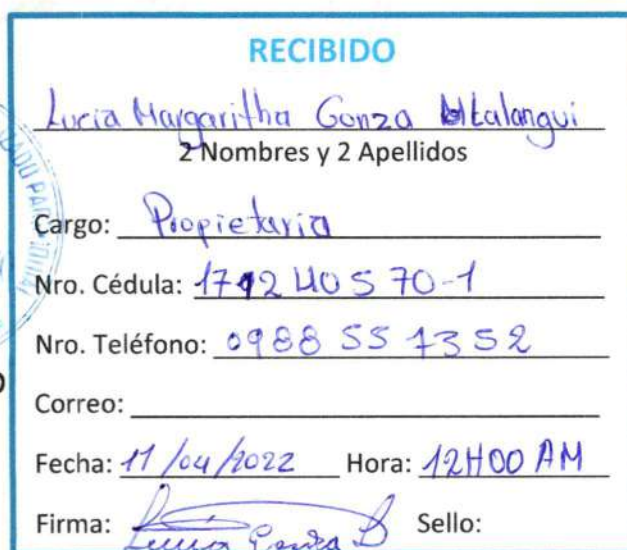 RECIBIDO
Lucia Margaritha Gonza
2 Nombres y 2 Apellidos
Cargo: Propietaria
Nro. Cédula: 171240570-1
Nro. Teléfono: 0988 55 1352
Correo:
Fecha: 11/04/2022 Hora: 12H00 AM
Firma: Lucia Gonza Sello: